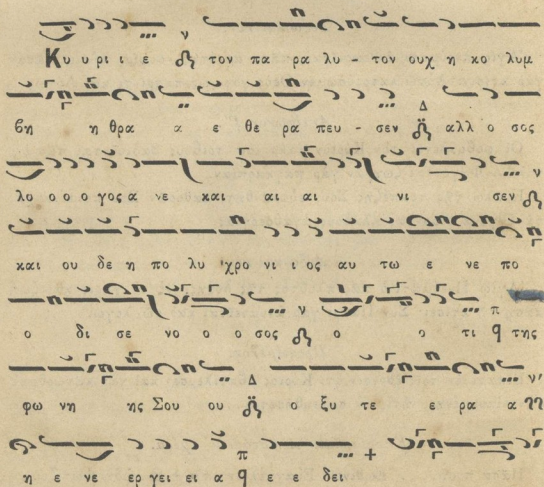 Κυ υ ρι ι ε τον πα ρα λυ - τον ουχ η κο λυμ
βη η θρα α ε θε ρα πευ - σεν αλλ ο σος
λο ο ο ο γος α νε και αι αι νι σεν
και ου δε η πο λυ χρο νι ι ος αυ τω ε νε πο
ο δι σε νο ο ο σος ο ο τι της
φω νη ης Σου ου ο ξυ τε ε ρα α
η ε νε ερ γει ει α ε ε δει